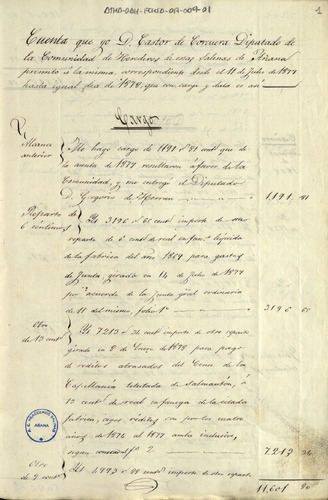 DAHD-DDH-FONDO-04-009-01
1
Cuenta que yo D. Castor de Corcuera Diputado de
la Comunidad de Herederos de esas Salinas de Añana
presento á la misma, correspondiente desde el 11 de Julio de 1877
hasta igual dia de 1878, que con cargo y data es
Cargo
Alcance anterior
Me hago cargo de 1191 81 cent que de
la cuenta de 1877 resultaron á favor de la
Comunidad, y me entregó el Diputado
D. Gregorio de Herran 1,191 81
Reparto de 6 centimos
Id. 3196 60 cent importe de otro
reparto de 6 cent de real en fan.ª liquida
de la fabrica del año 1864 para gastos
de Junta, girado en 14 de Julio de 1877
por acuerdo de la Junta gral ordinaria
de 11 del mismo, folio 1º 3196 60
Otro de 13 cent
Id. 7213 36 cent importe de otro reparto
girado en 2 de Enero de 1878 para pago
de réditos atrasados del Censo de la
Capellanía titulada de Salmanton, á
13 cent de real en fanega de la citada
fabrica, cuyos réditos son por los cuatro
años de 1874 al 1877 ambos inclusive,
segun 2 7,213 36
Otro de 9 cent
Id. 4993 88 cent importe de otro reparto
11,601 80
AÑANA